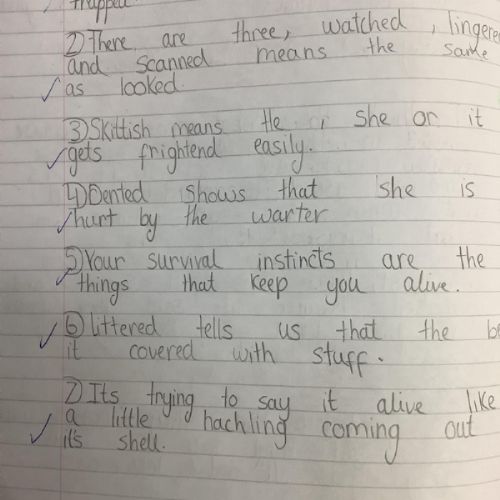 trapped.
2) There are three, watched, lingered
and scanned means the same
as looked.
3) Skittish means He, she or it
gets frightend easily.
4) Dented shows that she is
hurt by the warter
5) Your survival instincts are the
things that keep you alive.
6) littered tells us that the
it covered with stuff.
7) Its trying to say it alive like
a little hachling coming out
it's shell.